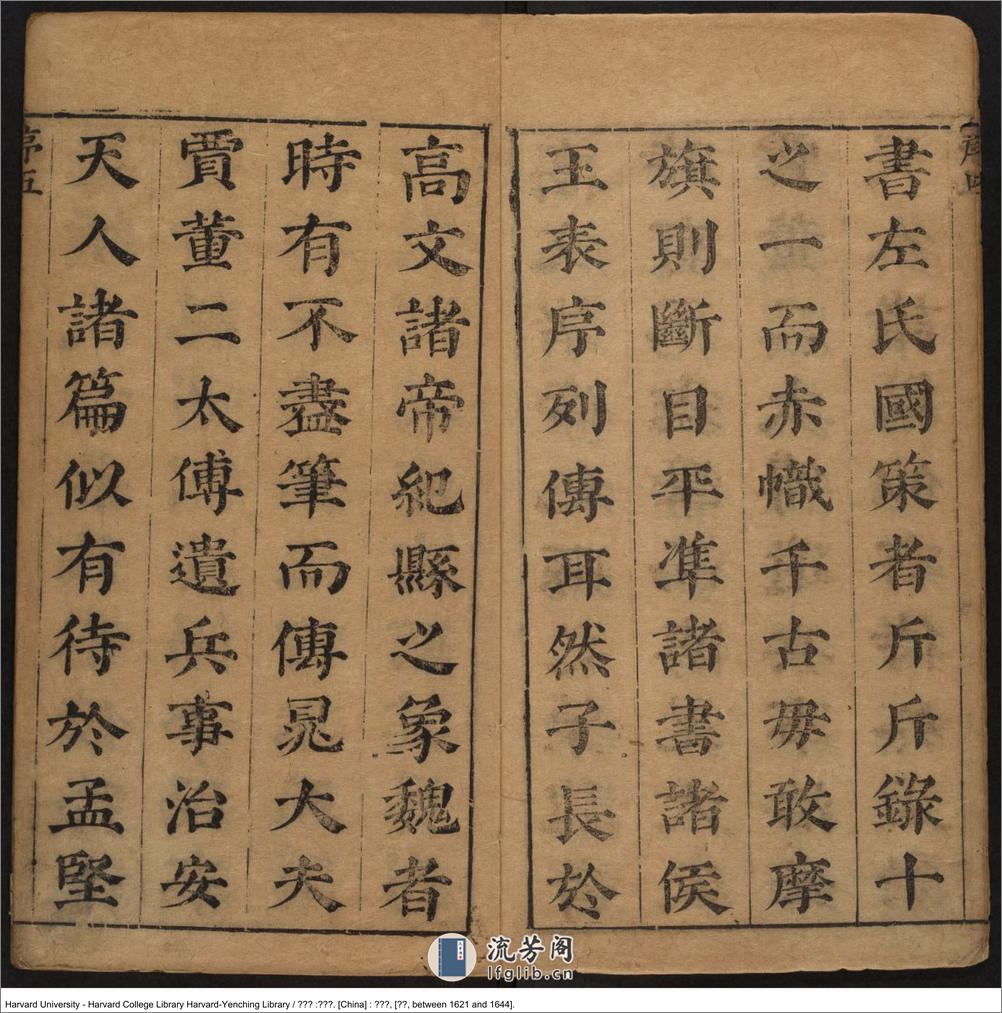 書左氏國策者斤斤錄十
之一而赤幟千古毋敢摩
旗則斷目平準諸書諸侯
王表序列傳耳然子長於
高文諸帝紀縣之象魏者
時有不盡筆而傳晁大夫
賈董二太傅遺兵事治安
天人諸篇似有待於孟堅
序五
流芳阁
lfglib.cn
Harvard University - Harvard College Library Harvard-Yenching Library / ??? :???. [China] : ???, [??, between 1621 and 1644].